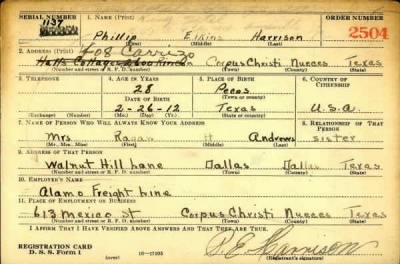 SERIAL NUMBER 1. NAME (Print) ORDER NUMBER
1137 Phillip Elkins Harrison 2504
(First) (Middle) (Last)
2. ADDRESS (Print) 408 Carrizo
Hatts Cottage Corpus Christi Nueces Texas
(Number and street or R. F. D. number) (Town) (County) (State)
3. TELEPHONE 4. AGE IN YEARS 5. PLACE OF BIRTH 6. COUNTRY OF CITIZENSHIP
28 Pecos
(Town or county)
DATE OF BIRTH
2-26-12 Texas U.S.A.
(Exchange) (Number) (Mo.) (Day) (Yr.) (State or country)
7. NAME OF PERSON WHO WILL ALWAYS KNOW YOUR ADDRESS 8. RELATIONSHIP OF THAT PERSON
Mrs Ragan H Andrews sister
(Mr., Mrs., Miss) (First) (Middle) (Last)
9. ADDRESS OF THAT PERSON
Walnut Hill Lane Dallas Dallas Texas
(Number and street or R. F. D. number) (Town) (County) (State)
10. EMPLOYER'S NAME
Alamo Freight Line
11. PLACE OF EMPLOYMENT OR BUSINESS
613 Mexico St Corpus Christi Nueces Texas
(Number and street or R. F. D. number) (Town) (County) (State)
I AFFIRM THAT I HAVE VERIFIED ABOVE ANSWERS AND THAT THEY ARE TRUE.
REGISTRATION CARD
D. S. S. Form 1 (over) 16-17105 P.E. Harrison
(Registrant's signature)